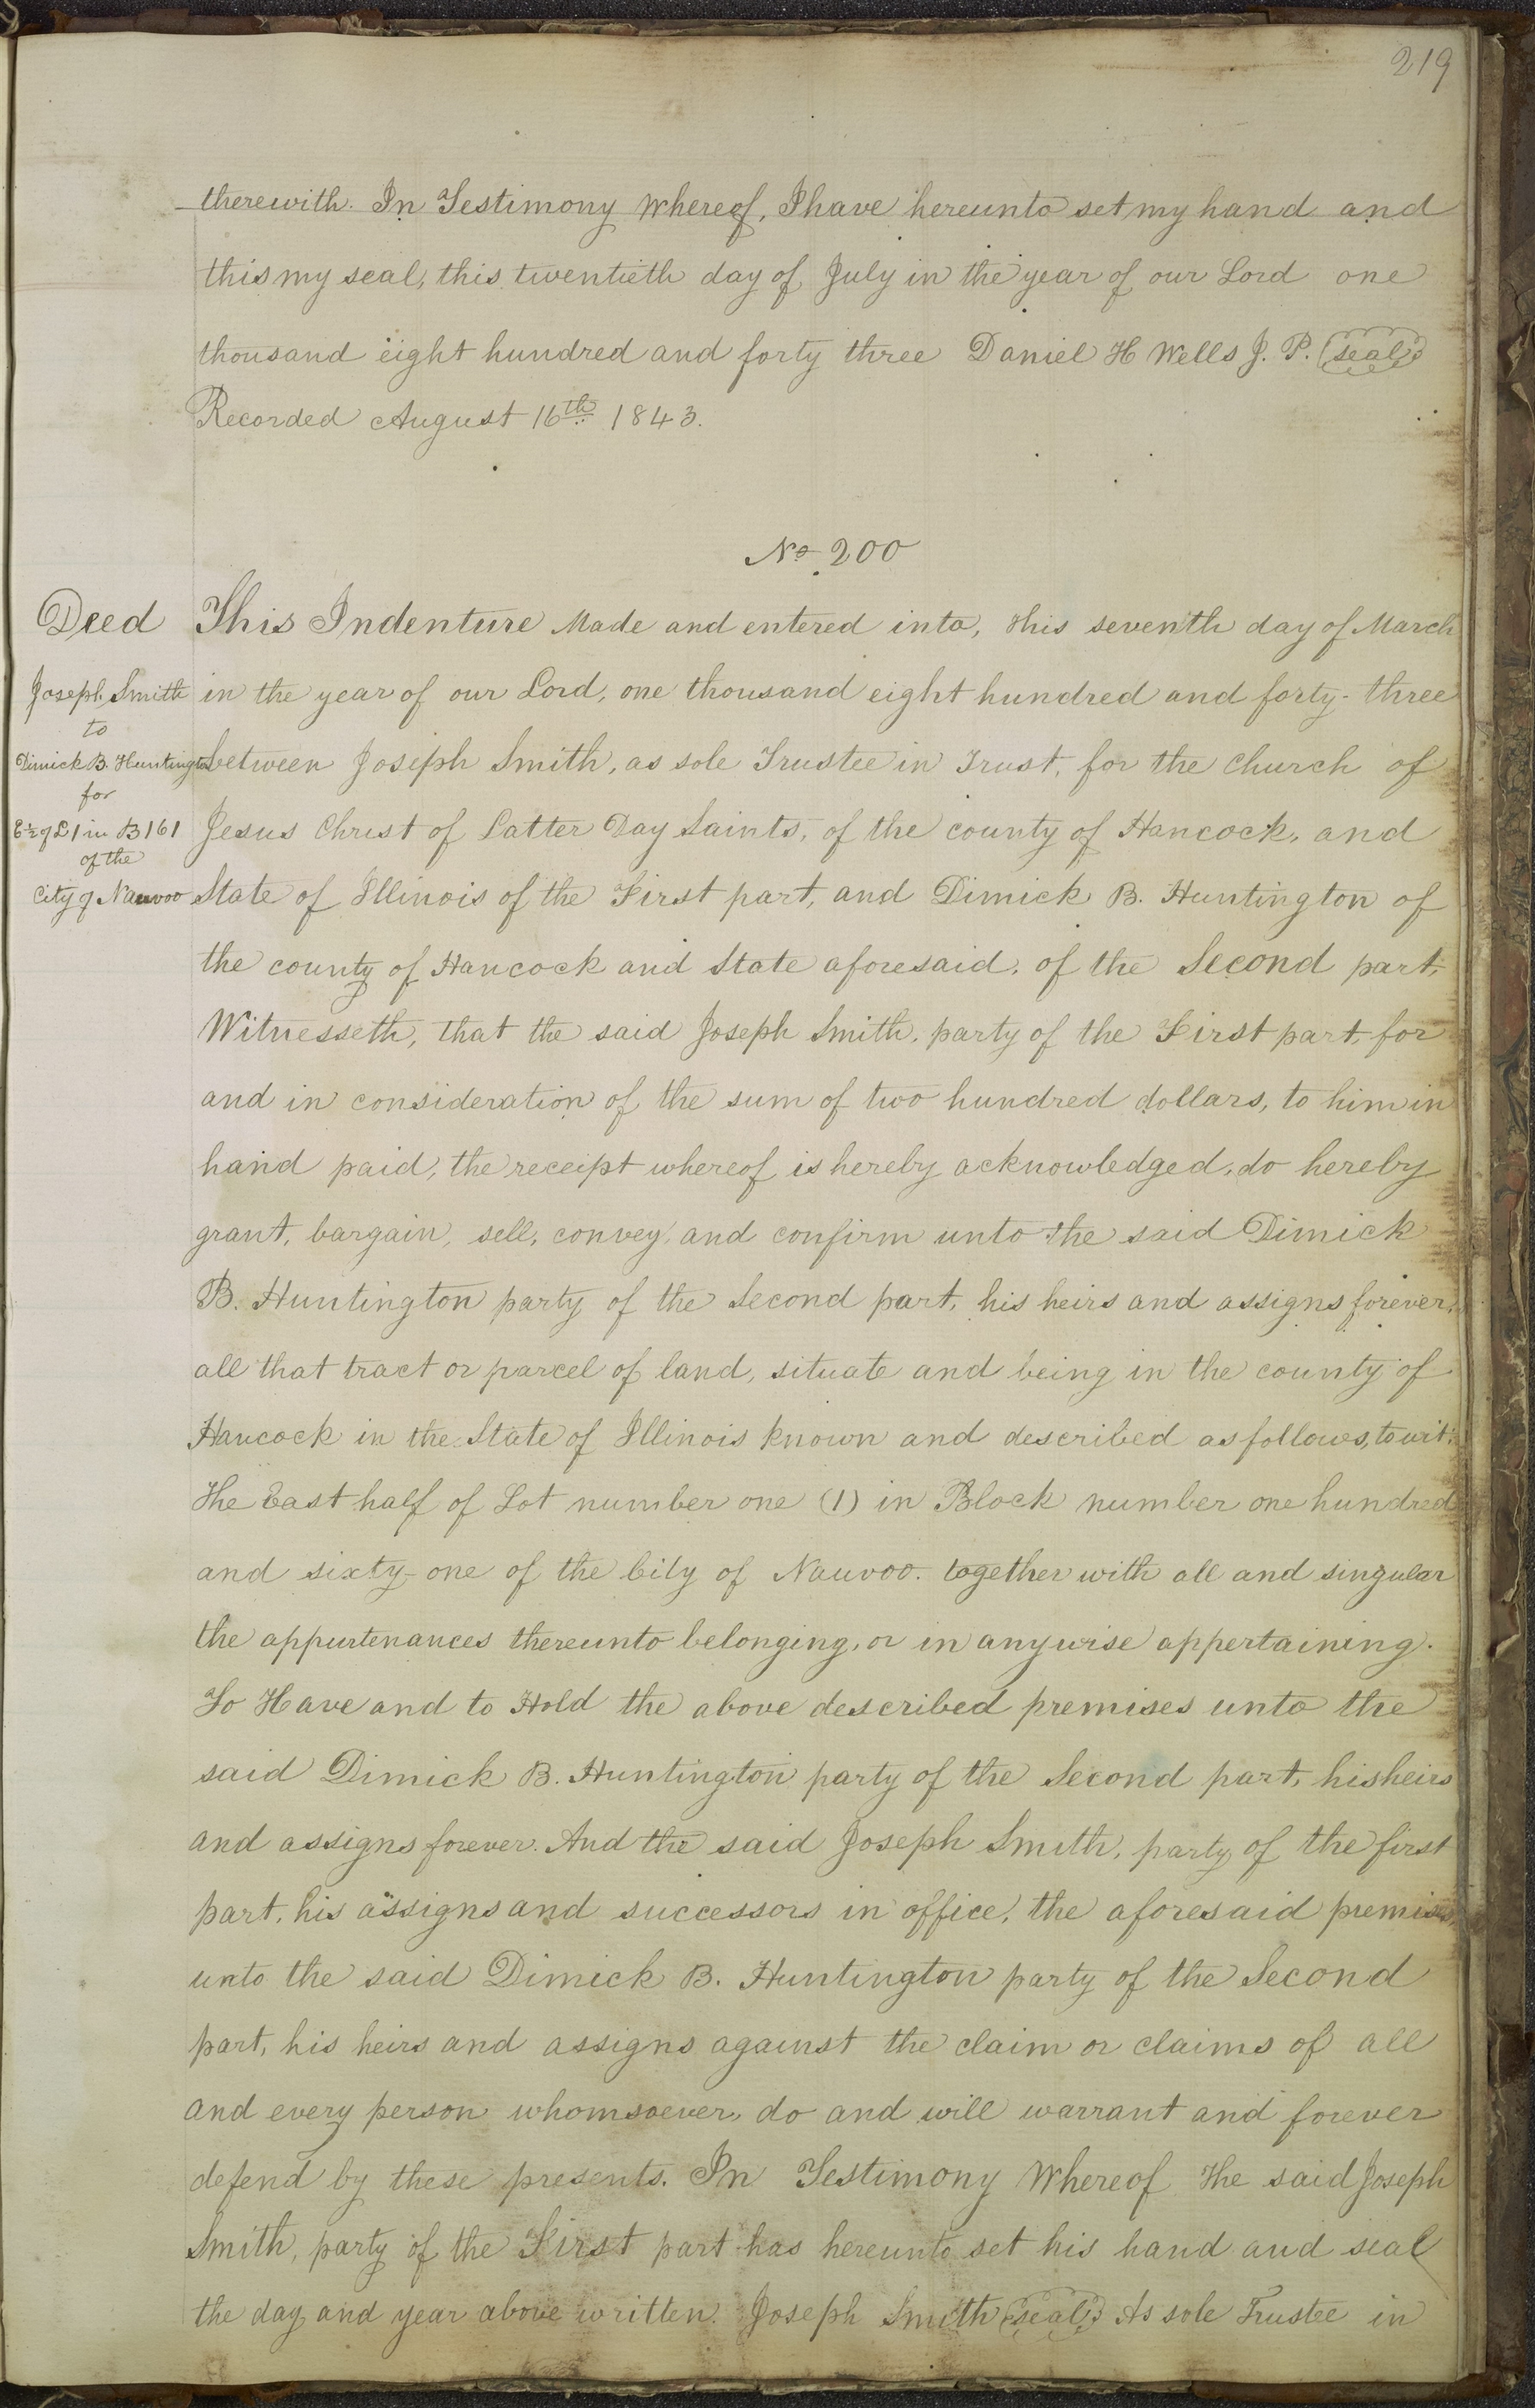 219
therewith. In Testimony Whereof, I have hereunto set my hand and
this my seal, this twentieth day of July in the year of our Lord one
thousand eight hundred and forty three Daniel H Wells J. P. (seal)
Recorded August 16th 1843.
No 200
Deed
Joseph Smith
to
Dimick B. Huntington
for
E ½ of L 1 in B 161
of the
City of Nauvoo
This Indenture Made and entered into, this seventh day of March
in the year of our Lord, one thousand eight hundred and forty-three
between Joseph Smith, as sole Trustee in Trust, for the Church of
Jesus Christ of Latter Day Saints, of the county of Hancock, and
State of Illinois of the First part, and Dimick B. Huntington of
the county of Hancock and State aforesaid, of the Second part,
Witnesseth, that the said Joseph Smith, party of the First part, for
and in consideration of the sum of two hundred dollars, to him in
hand paid, the receipt whereof is hereby acknowledged, do hereby
grant, bargain, sell, convey, and confirm unto the said Dimick
B. Huntington party of the Second part, his heirs and assigns forever,
all that tract or parcel of land, situate and being in the county of
Hancock in the State of Illinois known and described as follows, to wit:
The East half of Lot number one (1) in Block number one hundred
and sixty-one of the City of Nauvoo. together with all and singular
the appurtenances thereunto belonging, or in anywise appertaining.
To Have and to Hold the above described premises unto the
said Dimick B. Huntington party of the Second part, his heirs
and assigns forever. And the said Joseph Smith, party of the first
part, his assigns and successors in office, the aforesaid premises,
unto the said Dimick B. Huntington party of the Second
part, his heirs and assigns against the claim or claims of all
and every person whomsoever, do and will warrant and forever
defend by these presents. In Testimony Whereof the said Joseph
Smith, party of the First part has hereunto set his hand and seal
the day and year above written. Joseph Smith (seal) As sole Trustee in